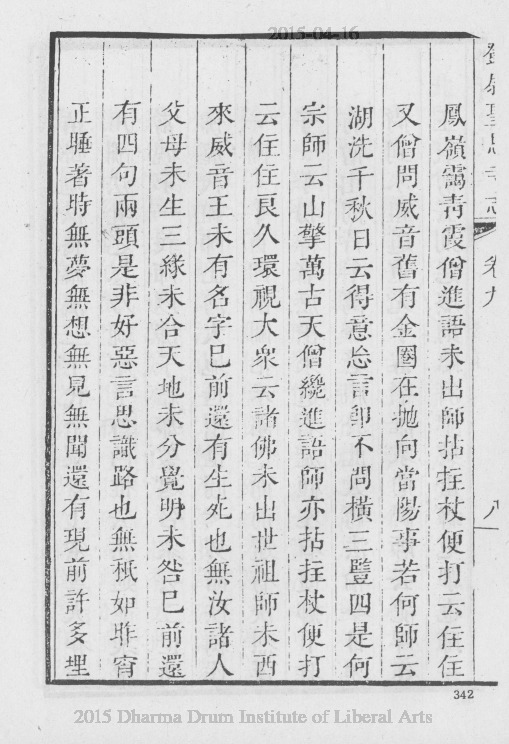 2015-04-16
卷九
八
鳳嶺靄青霞僧進語未出師拈拄杖便打云住住
又僧問威音舊有金圈在拋向當陽事若何師云
湖洗千秋日云得意忘言卽不問橫三豎四是何
宗師云山擎萬古天僧纔進語師亦拈拄杖便打
云住住良久環視大衆云諸佛未出世祖師未西
來威音王未有名字巳前還有生死也無汝諸人
父母未生三緣未合天地未分覺明未咎巳前還
有四句兩頭是非好惡言思識路也無秖如昨宵
正睡著時無夢無想無見無聞還有現前許多埋
342
2015 Dharma Drum Institute of Liberal Arts